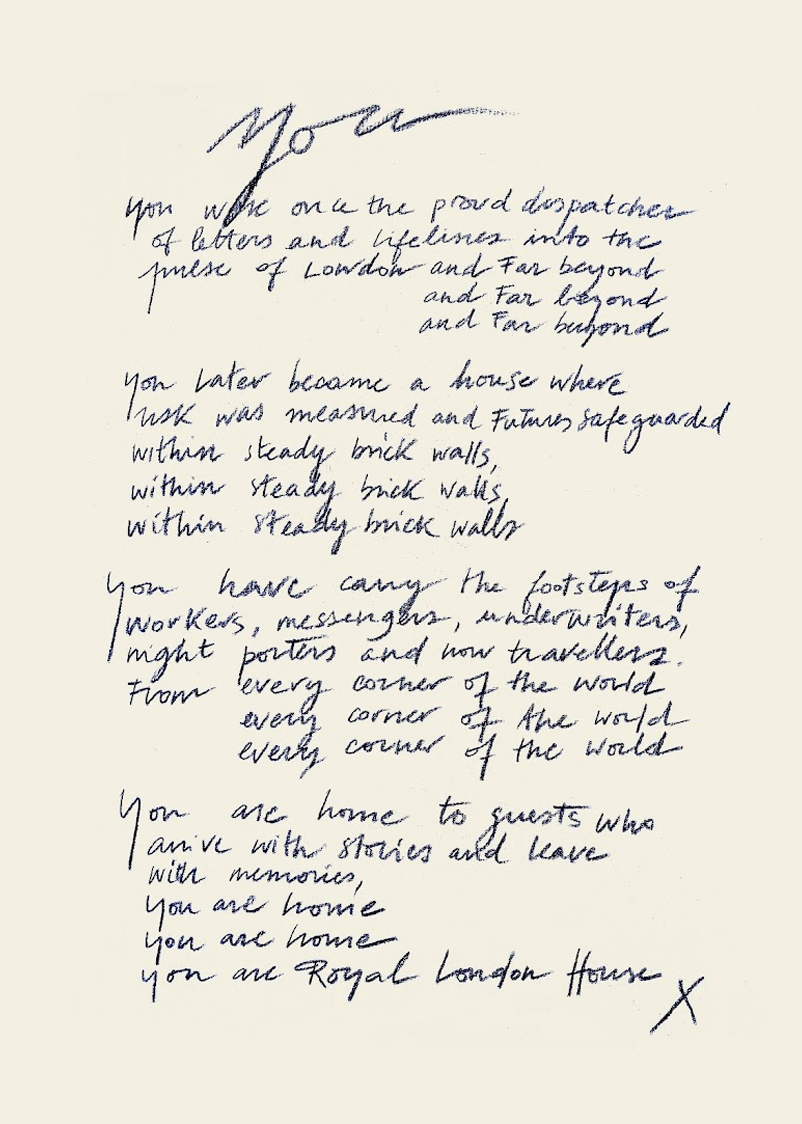 you
you were once the proud dispatcher
of letters and lifelines into the
pulse of London and Far beyond
and Far beyond
and Far beyond
you later became a house where
risk was measured and Futures safeguarded
within steady brick walls,
within steady brick walls,
within steady brick walls
you have carry the footsteps of
workers, messengers, underwriters,
night porters and now travellers.
From every corner of the world
every corner of the world
every corner of the world
You are home to guests who
arrive with stories and leave
with memories,
you are home
you are home
you are Royal London House
X